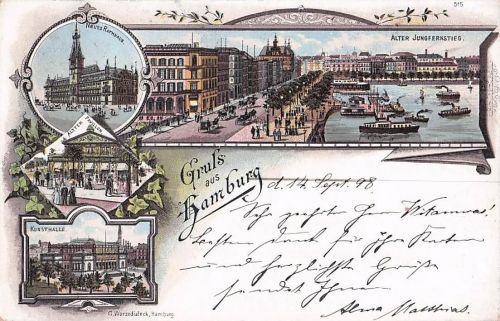 515
Neues Rathaus
Alter Jungfernstieg.
Alster Pavillon
Gruss
aus
Hamburg
d. 14 Sept. 98.
Kunsthalle.
Sehr geehrter Herr
Besten Dank für Ihre Karten
und herzlichste Grüße
sendet Ihnen
Alma Matthias.
Hamburg.